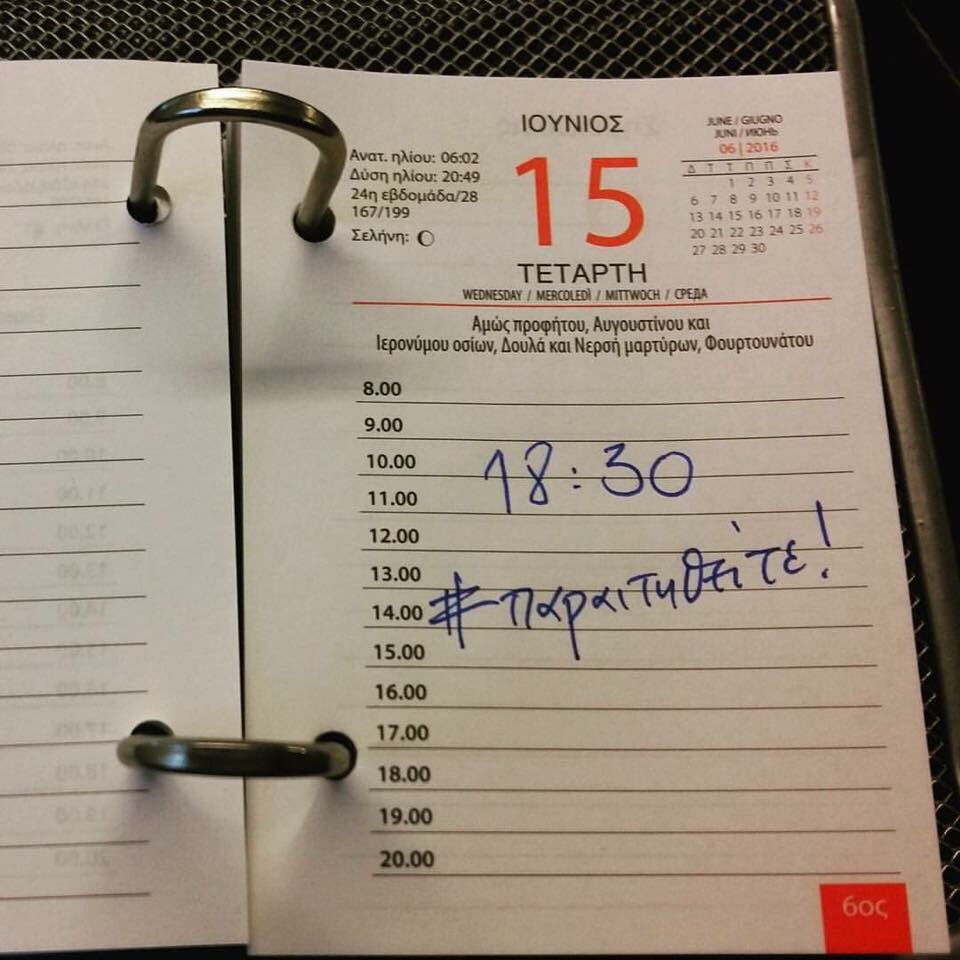 ΙΟΥΝΙΟΣ
Ανατ. ηλίου: 06:02
Δύση ηλίου: 20:49
24η εβδομάδα/28
167/199
Σελήνη:
15
JUNE / GIUGNO
JUNI / ИЮНЬ
06 | 2016
Δ Τ Τ Π Π Σ Κ
1 2 3 4 5
6 7 8 9 10 11 12
13 14 15 16 17 18 19
20 21 22 23 24 25 26
27 28 29 30
ΤΕΤΑΡΤΗ
WEDNESDAY / MERCOLEDÌ / MITTWOCH / СРЕДА
Αμώς προφήτου, Αυγουστίνου και
Ιερονύμου οσίων, Δουλά και Νερσή μαρτύρων, Φουρτουνάτου
8.00
9.00
10.00
18:30
11.00
12.00
13.00
#παραιτηθείτε!
14.00
15.00
16.00
17.00
18.00
19.00
20.00
6ος